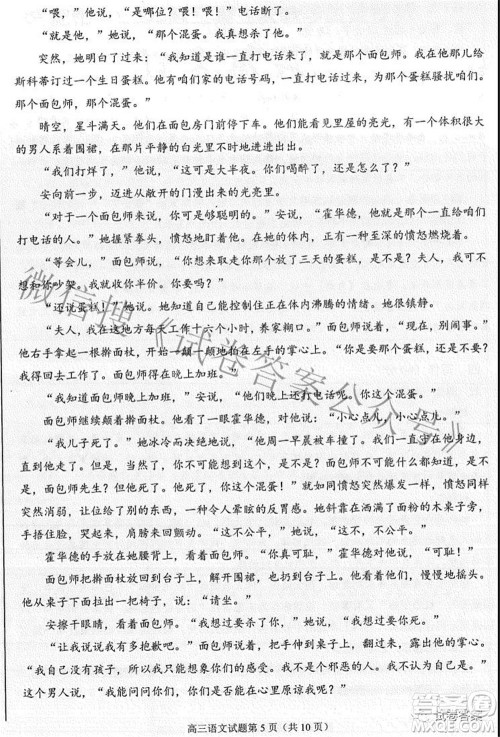 “喂，”他说，“是哪位？喂！喂！”电话断了。
“就是他，”她说，“那个混蛋。我真想杀了他。”
突然，她明白了过来：“我知道是谁一直打电话来了，就是那个面包师。我在他那儿给
斯科蒂订过一个生日蛋糕。他有咱们家的电话号码，一直打电话来为那个蛋糕骚扰咱们。
那个面包师，那个混蛋。”
晴空，星斗满天。他们在面包房门前停下车。他们能看见里屋的亮光，有一个体积很大
的男人系着围裙，在那片平静的白光里不时地进进出出。
“我们打烊了，”他说，“这可是大半夜。你们喝醉了，还是怎么了？”
安向前一步，迈进从敞开的门漫出来的光亮里。
“对于一个面包师，你可是够聪明的。”安说，“霍华德，他就是那个一直给咱们
打电话的人。”她握紧拳头，愤怒地盯着他。在体内，正有一种至深的愤怒燃烧着。
“等会儿，”面包师说，“你来取你那个放了三天的蛋糕，是不是？夫人，我可不
想和你吵架。我就收你半价。”
“还说蛋糕！”她说。她知道自己能控制住正在体内沸腾的情绪。她很镇静。
“夫人，我在这地方每天工作十六个小时，养家糊口。”面包师说，“现在，别闹事。”
他右手拿起一根擀面杖，开始一颠一颠地拍在左手的掌心上。“你是要蛋糕，还是不要？
我得回去工作了。面包师得在晚上加班。”
“我知道面包师晚上加班，”安说，“他们晚上还打电话呢。你这个混蛋。”
面包师继续颠着擀面杖。他看了一眼霍华德，对他说：“小心点儿，小心点儿。”
“我儿子死了。”她冰冷而决绝地说，“他周一早晨被车撞了。我们一直守在他身边，
直到他走了。但是，当然了，你不可能知道这些，是吧？面包师不可能什么都知道，是不
是，面包师先生？但他死了。他死了，你这个混蛋！”就如同愤怒突然爆发一样，愤怒同样
突然消弱，让位给了别的东西，一种令人晕眩的反胃感。她斜靠在洒满了面粉的木桌子旁，
手捂住脸，哭起来，肩膀前后颤动。“这不公平，”她说，“这不，不公平。”
霍华德的手放在她腰背上，看着面包师。“你真可耻，”霍华德对他说，“可耻！”
面包师把擀面杖放回到台子上，解开围裙，也扔到了台子上。他看着他们，慢慢地摇摇头。
他从桌子下抽出一把椅子，说：“请坐。”
安擦干眼睛，看着面包师。“我想杀了你，”她说，“我想要你死。”
“让我说说我有多抱歉吧。”面包师说着，把手伸到了桌上。
“我自己没有孩子，所以我只能想象你们的感受。我所能对你们说的只是，对不起。
如果可以，请原谅我。”面包师说，“你们能在心里原谅我吗？”
高三语文试题第 5 页（共 10 页）
微信搜《试卷答案公众号》
试卷答案
MXQE.COM